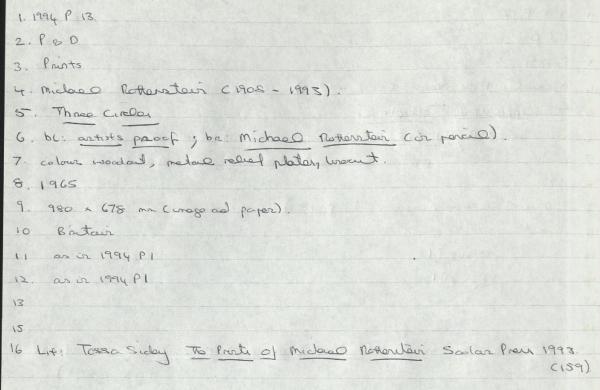 1. 1994 P 13
2. P & D
3. Prints
4. Michael Rothenstein (1908 - 1993).
5. Three Circles
6. bl: artists proof ; br: Michael Rothenstein (in pencil).
7. colour woodcut, metal relief plates, linocut.
8. 1965
9. 980 x 678 mm (image and paper).
10 Britain
11 as in 1994 P1
12. as in 1994 P1
13
15
16 Lit: Tessa Sidey The Prints of Michael Rothenstein Scolar Press 1993.
(159)